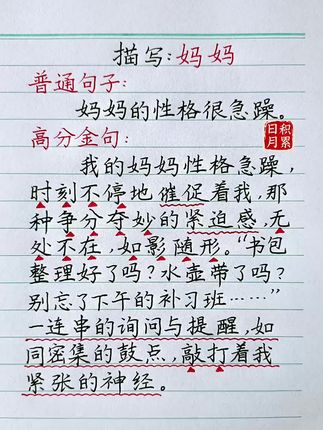 描写:妈妈
普通句子:
妈妈的性格很急躁。
高分金句:
日积月累
我的妈妈性格急躁,
时刻不停地催促着我,那
种争分夺妙的紧迫感,无
处不在,如影随形。“书包
整理好了吗?水壶带了吗?
别忘了下午的补习班……”
一连串的询问与提醒,如
同密集的鼓点,敲打着我
紧张的神经。